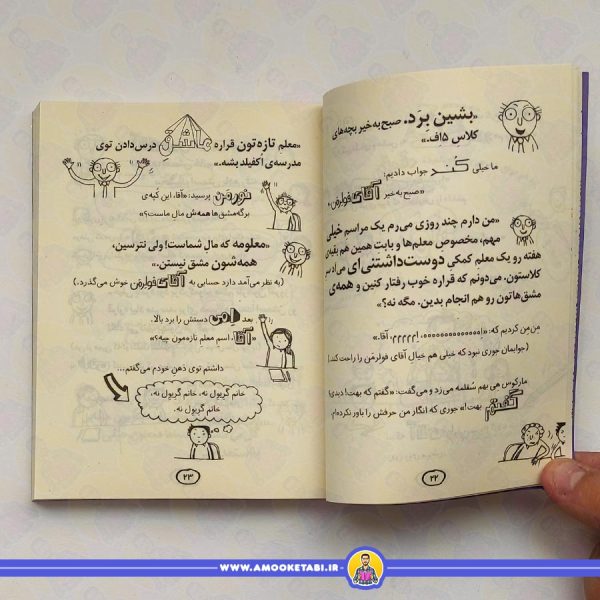 «بشین بِرَد. صبح‌به‌خیر بچه‌های
کلاس ۵اف.»
ما خیلی کُند جواب دادیم:
«صبح‌به‌خیر آقای فولرمَن.»
«من دارم چند روزی می‌رم یک مراسم خیلی
مهم، مخصوص معلم‌ها و بابت همین هم بقیه‌ی
هفته رو یک معلم کمکی دوست‌داشتنی‌ای می‌آد سر
کلاستون. می‌دونم که قراره خوب رفتار کنین و همه‌ی
مشق‌هاتون رو هم انجام بدین. مگه نه؟»
مِن‌مِن کردیم که:
(جوابمان جوری نبود که خیلی هم خیال آقای فولرمَن را راحت کند.)
مارکوس هی بهم سُقلمه می‌زد و می‌گفت: «گفتم که بهت! دیدی!
گفتم بهت!» جوری که انگار من حرفش را باور نکرده‌ام.
۲۲
«معلم تازه‌تون قراره درس‌دادن توی
مدرسه‌ی اُکفیلد بشه.»
نورمَن پرسید: «آقا، این کُپه‌ی
برگه‌مشق‌ها همه‌ش مال ماست؟»
«معلومه که مالِ شماست! ولی نترسین،
همه‌شون مشق نیستن.»
(به نظر می‌آمد دارد حسابی به آقای فولرمَن خوش می‌گذرد.)
بعد اِمی دستش را برد بالا.
«آقا، اسم معلم تازه‌مون چیه؟»
داشتم توی ذهن خودم می‌گفتم...
خانم گریول نه، خانم گریول نه،
خانم گریول نه، خانم گریول نه.
۲۳
WWW.AMOOKETABI.IR